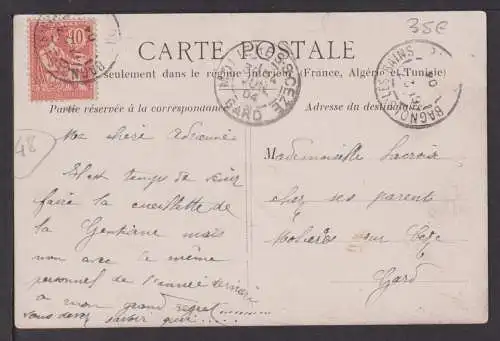 35€
CARTE POSTALE
seulement dans le régime intérieur (France, Algérie et Tunisie)
Partie réservée à la correspondance
Adresse du destinataire
10
MOLIÈRES-S-CÈZE
GARD
04
BAGNOLS-LES-BAINS
48
Ma chère Adrienne
Il est temps de venir
faire la cueillette de
la Gentiane mais
non avec le même
personnel de l'année dernière
à mon grand regret
vous devez savoir qui
Mademoiselle Lacroix
chez ses parents
Molières sur Cèze
Gard